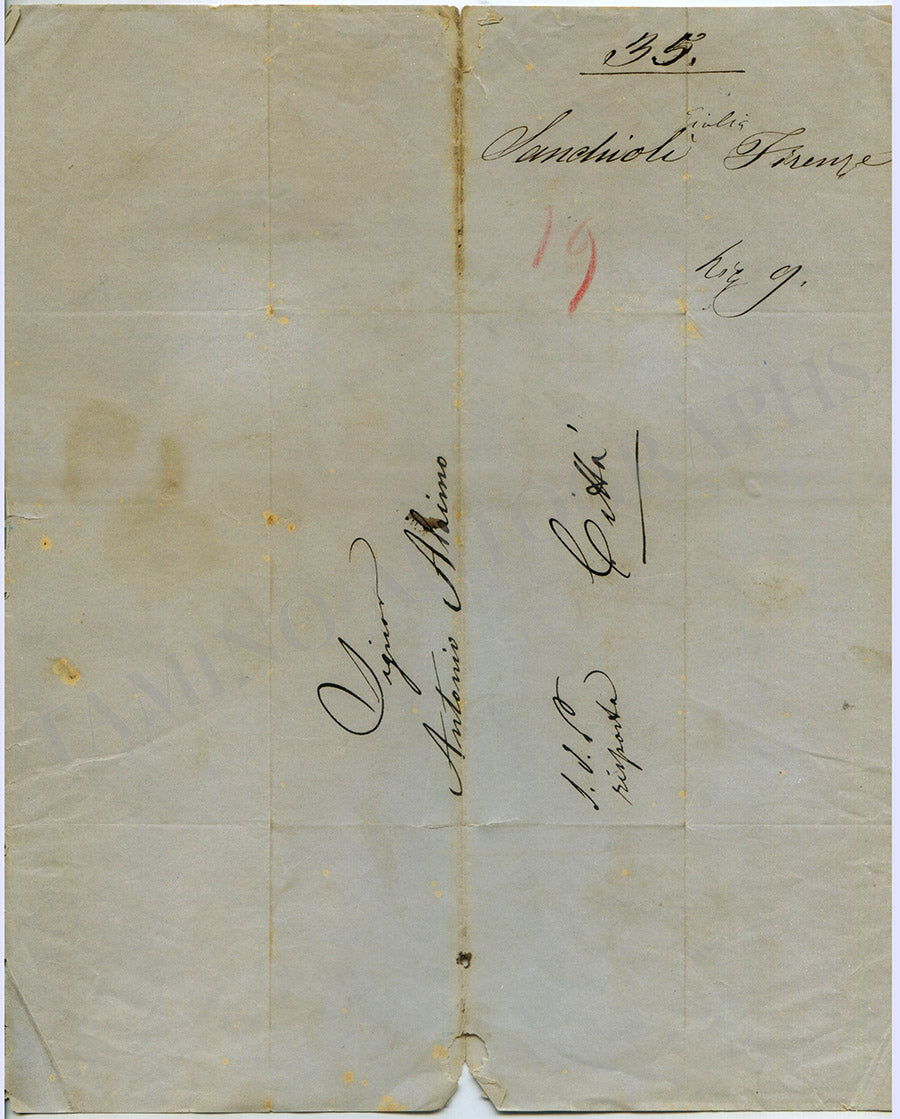 35.
Giulia
Sanchioli Firenze
19
9.
Signor
Antonio
Città
S. S. P.
risposta
TAMINO AUTOGRAPHS